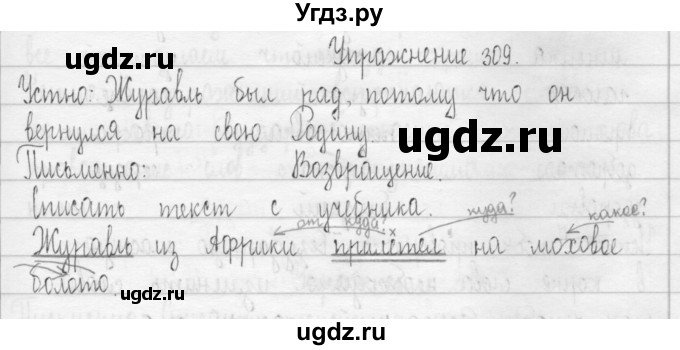 Угдз.ру
Упражнение 309.
ugdz.ru
Устно: Журавль был рад, потому что он
вернулся на свою Родину
ugdz.ru
Письменно: Возвращение.
Списать текст с учебника.
куда? какое?
от куда? х
Журавль из Африки прилетел на моховое
болото
ugdz.ru
ugdz.ru
ugdz.ru